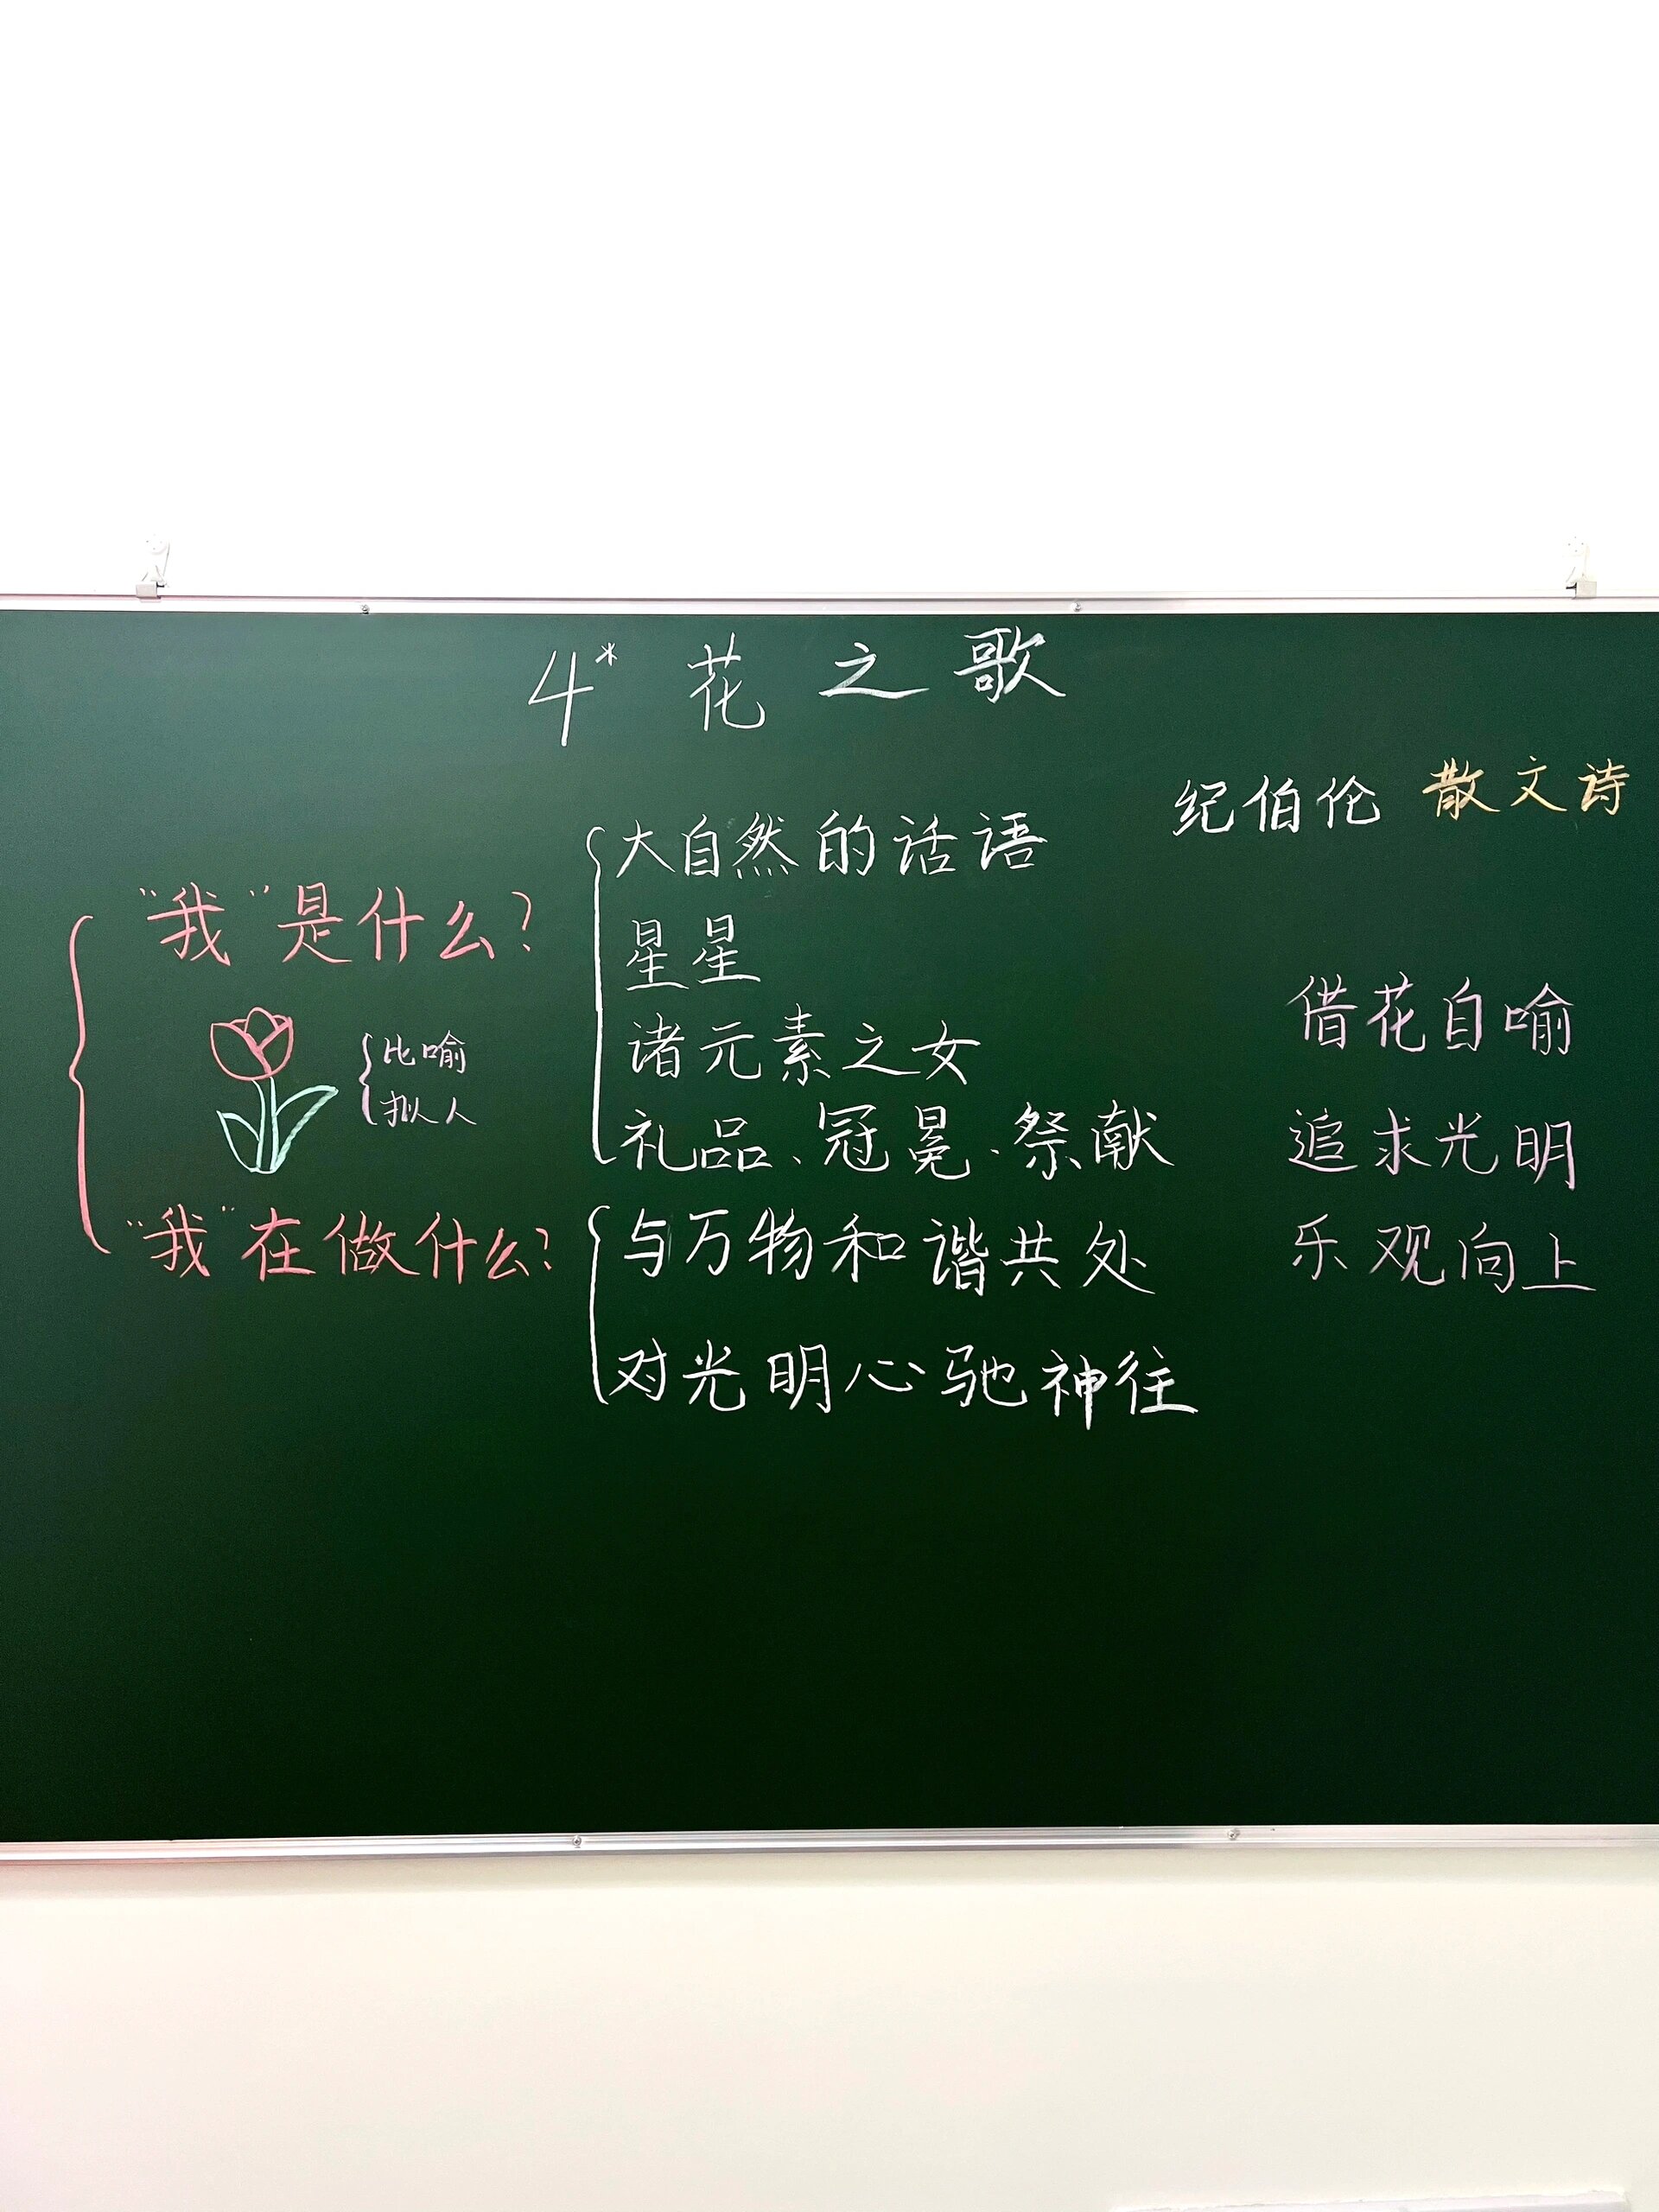 4* 花之歌
纪伯伦 散文诗
“我”是什么？
大自然的话语
星星
诸元素之女
礼品、冠冕、祭献
比喻
拟人
“我”在做什么？
与万物和谐共处
对光明心驰神往
借花自喻
追求光明
乐观向上